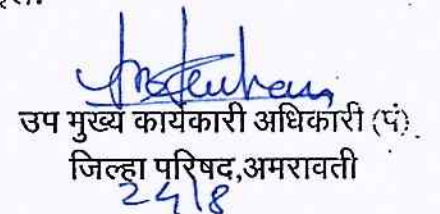 उप मुख्य कार्यकारी अधिकारी (पं).
जिल्हा परिषद,अमरावती
24/8